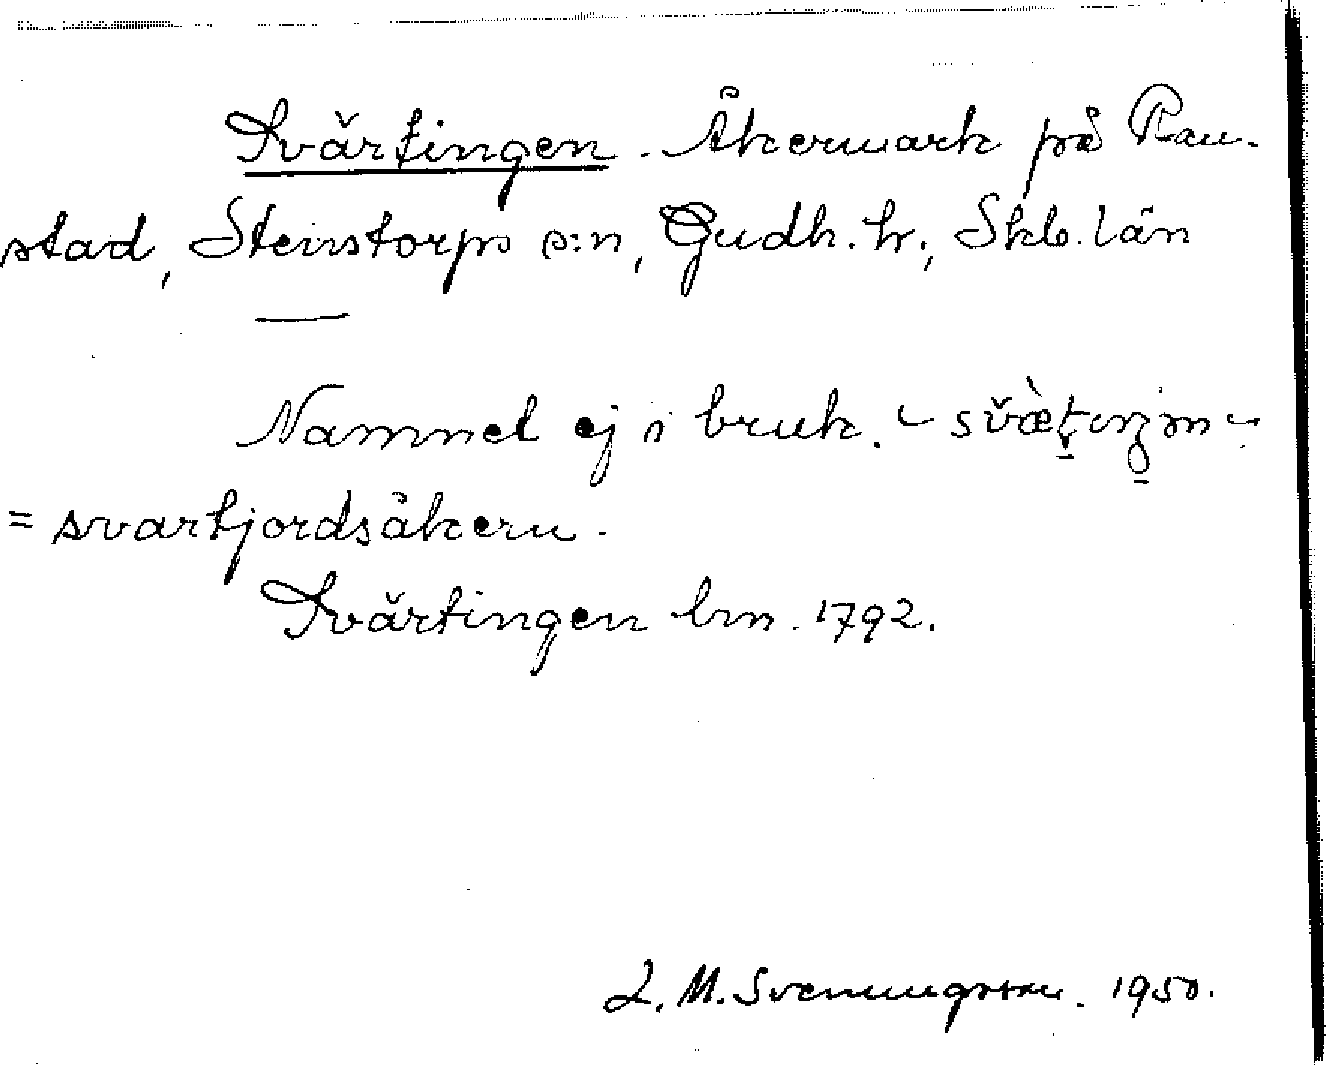 Svärtingen. Åkermark på Rau-
stad, Stenstorps s:n, Gudh. hr., Skb. län
Namnet ej i bruk.
= svartjordsåkern.
Svärtingen lm. 1792.
L. M. Svenungsson. 1950.